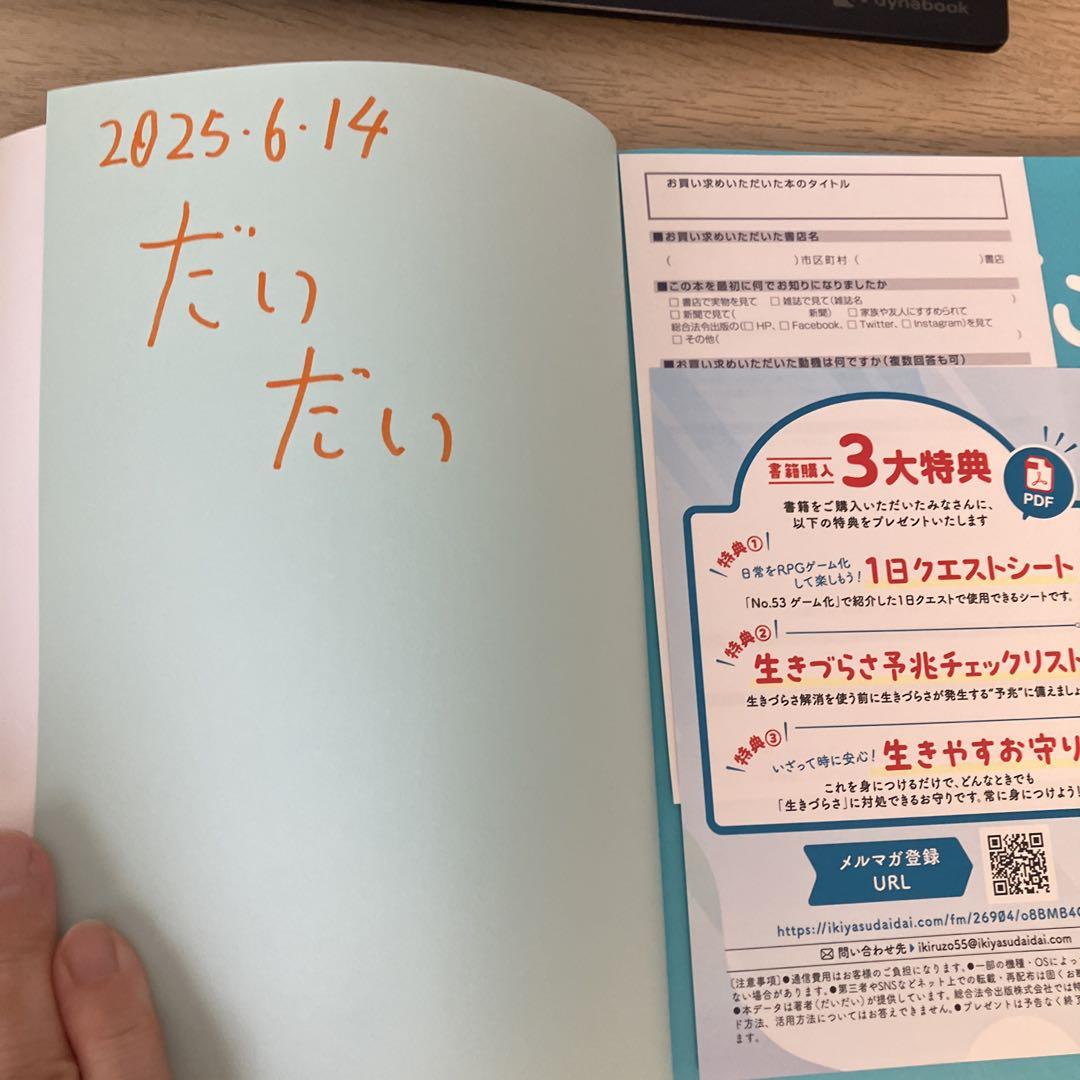 dynabook
2025・6・14
だい
だい
お買い求めいただいた本のタイトル
■お買い求めいただいた書店名
( )市区町村 ( )書店
■この本を最初に何でお知りになりましたか
□ 書店で実物を見て □ 雑誌で見て(雑誌名 )
□ 新聞で見て( 新聞) □ 家族や友人にすすめられて
総合法令出版の(□ HP、□ Facebook、□ Twitter、□ Instagram)を見て
□ その他( )
■お買い求めいただいた動機は何ですか(複数回答も可)
書籍購入 3大特典
PDF
書籍をご購入いただいたみなさんに、
以下の特典をプレゼントいたします
特典①
日常をRPGゲーム化
して楽しもう!
1日クエストシート
「No.53 ゲーム化」で紹介した1日クエストで使用できるシートです。
特典②
生きづらさ予兆チェックリスト
生きづらさ解消を使う前に生きづらさが発生する"予兆"に備えましょ
特典③
いざって時に安心! 生きやすお守り
これを身につけるだけで、どんなときでも
「生きづらさ」に対処できるお守りです。常に身につけよう!
メルマガ登録
URL
https://ikiyasudaidai.com/fm/26904/o8BMB4
問い合わせ先▶ikiruzo55@ikiyasudaidai.com
[注意事項]●通信費用はお客様のご負担になります。●一部の機種・OSによっ
ない場合があります。●第三者やSNSなどネット上での転載・再配布は固くお断
●本データは著者(だいだい)が提供しています。総合法令出版株式会社では特
ド方法、活用方法についてはお答えできません。●プレゼントは予告なく終了
ます。